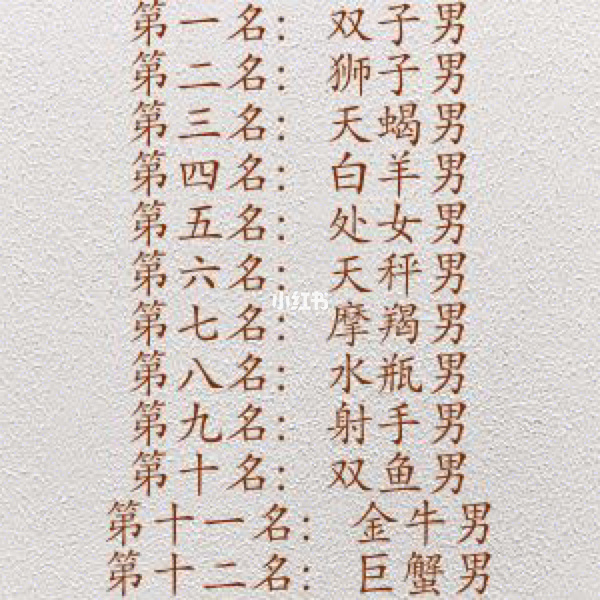 第一名：双子男
第二名：狮子男
第三名：天蝎男
第四名：白羊男
第五名：处女男
第六名：天秤男
小红书
第七名：摩羯男
第八名：水瓶男
第九名：射手男
第十名：双鱼男
第十一名：金牛男
第十二名：巨蟹男